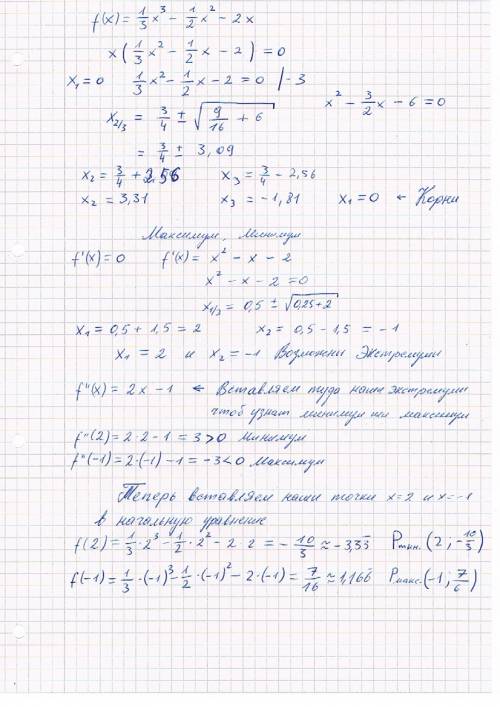 f(x) = 1/3 x³ − 1/2 x² − 2x
x ( 1/3 x² − 1/2 x − 2 ) = 0
x₁ = 0 1/3 x² − 1/2 x − 2 = 0 | · 3
x² − 3/2 x − 6 = 0
x₂/₃ = 3/4 ± √(9/16 + 6)
= 3/4 ± 3,09
x₂ = 3/4 + 2,56 x₃ = 3/4 − 2,56
x₂ = 3,31 x₃ = −1,81 x₁ = 0 ← Корни
Максимум, Минимум
f'(x) = 0 f'(x) = x² − x − 2
x² − x − 2 = 0
x₁/₂ = 0,5 ± √(0,25 + 2)
x₁ = 0,5 + 1,5 = 2 x₂ = 0,5 − 1,5 = −1
x₁ = 2 и x₂ = −1 Возможни Экстремуми
f''(x) = 2x − 1 ← Вставляем туда наши экстремуми
чтоб узнат минимум или максимум
f''(2) = 2 · 2 − 1 = 3 > 0 Минимум
f''(−1) = 2 · (−1) − 1 = −3 < 0 Максимум
Теперь вставляем наши точки x = 2 и x = −1
в начальную уравнение
f(2) = 1/3 · 2³ − 1/2 · 2² − 2 · 2 = − 10/3 ≈ −3,33 Pмин. (2; −10/3)
f(−1) = 1/3 · (−1)³ − 1/2 · (−1)² − 2 · (−1) = 7/16 ≈ 1,166 Pмакс. (−1; 7/6)